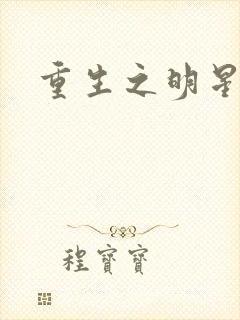 重生之明星
程寶寶